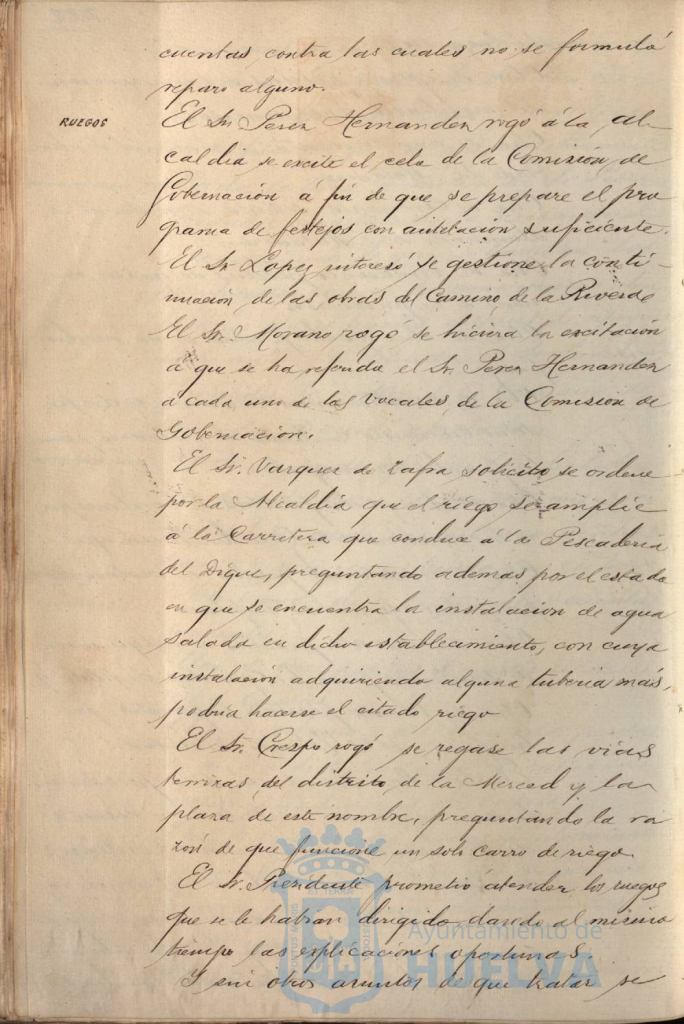 cuentas contra las cuales no se formuló
reparo alguno.
RUEGOS
El Sr. Perez Hernandez rogó á la Al-
caldia se excite el celo de la Comisión de
Gobernación á fin de que se prepare el pro
grama de festejos con antelación suficiente.
El Sr. Lopez interesó se gestione la conti-
nuación de las obras del Camino de la
El Sr. Morano rogó se hiciera la excitación
a que se ha referido el Sr. Perez Hernandez
a cada uno de los Vocales de la Comision de
Gobernacion.
El Sr. Vazquez de Zafra solicitó se ordene
por la Alcaldia que el riego se amplie
á la Carretera que conduce á la Pescaderia
del Dique, preguntando ademas por el estado
en que se encuentra la instalacion de agua
salada en dicho establecimiento, con cuya
instalación adquiriendo alguna tuberia más,
podria hacerse el citado riego
El Sr. Crespo rogó se regase las vias
terrizas del distrito de la Merced y la
plaza de este nombre, preguntando la ra
zón de que funcione un solo carro de riego.
El Sr. Presidente prometió atender los ruegos
que se le habian dirigido dando al mismo
tiempo las explicaciones oportunas.
Y sin otros asuntos de que tratar se
Ayuntamiento de
HUELVA